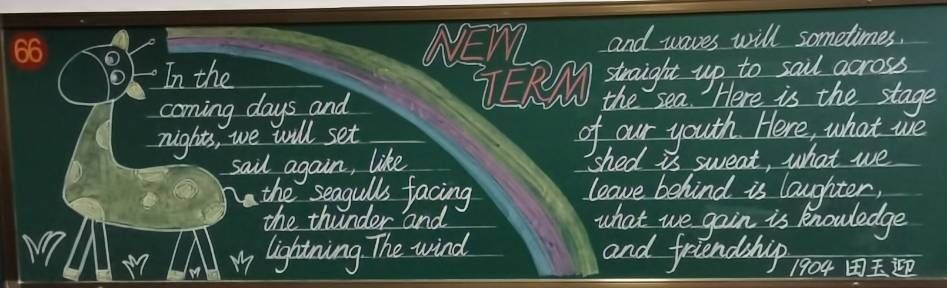 66
NEW
TERM
In the
coming days and
nights, we will set
sail again, like
the seagulls facing
the thunder and
lightning. The wind
and waves will sometimes.
straight up to sail across
the sea. Here is the stage
of our youth. Here, what we
shed is sweat, what we
leave behind is laughter,
what we gain is knowledge
and friendship.
1904 田玉迎